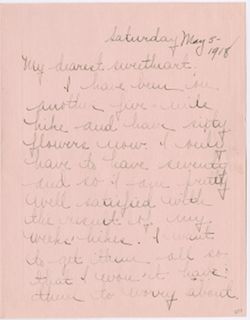 Saturday May 5-
1918
My dearest sweetheart.
I have been on
another five-mile
hike and have sixty
flowers now. I only
have to have seventy
and so I am pretty
well satisfied with
the result of my
weeks' hikes. I want
to get them all so
that I won't have
them to worry about.